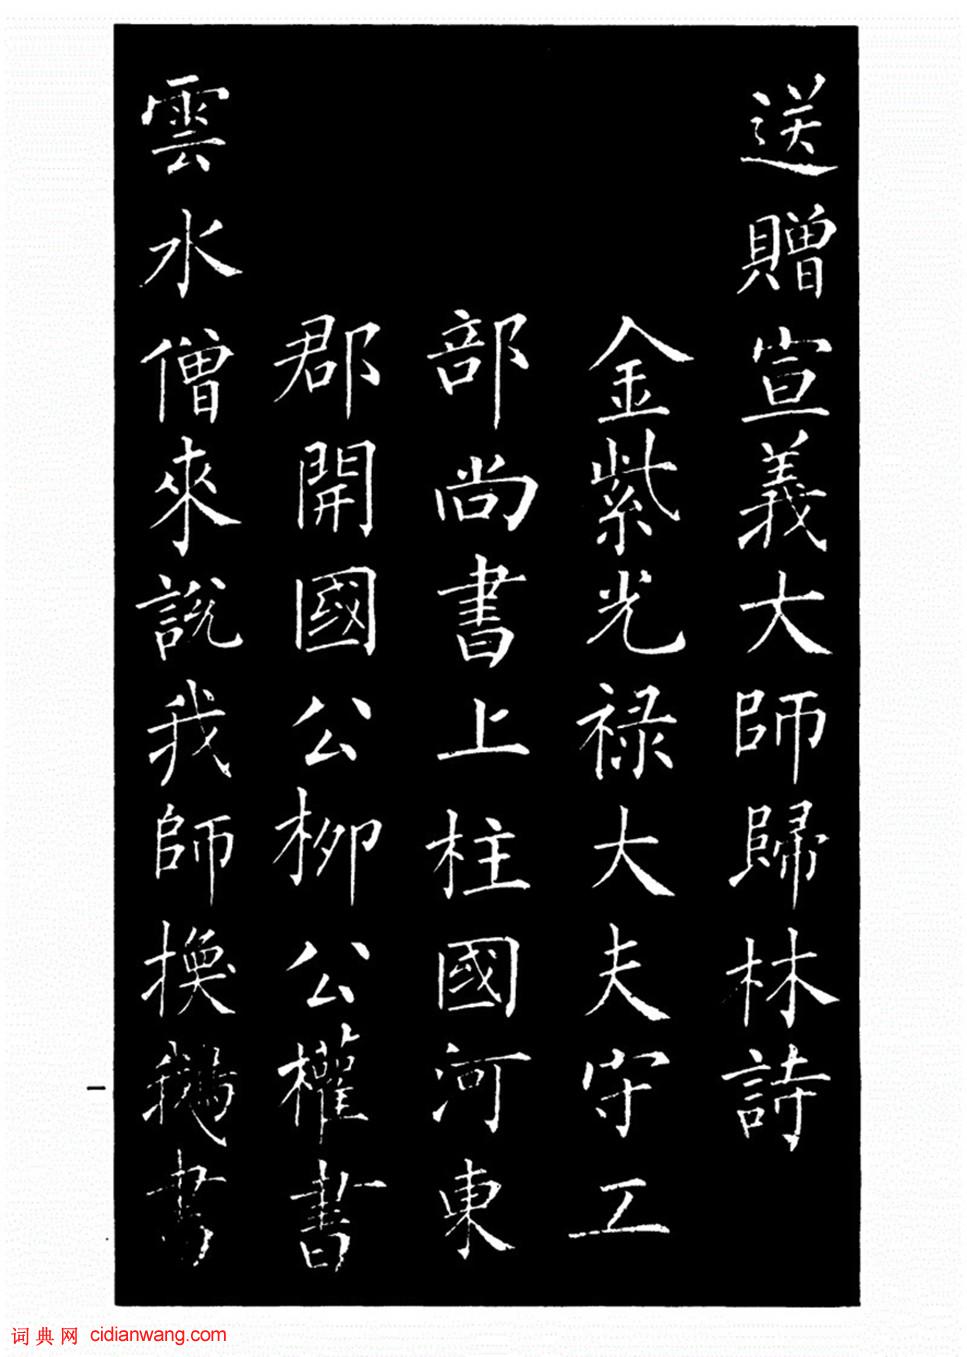 送贈宣義大師歸林詩
金紫光祿大夫守工
部尚書上柱國河東
郡開國公柳公權書
雲水僧來說我師換鵝書
一
词典网 cidianwang.com